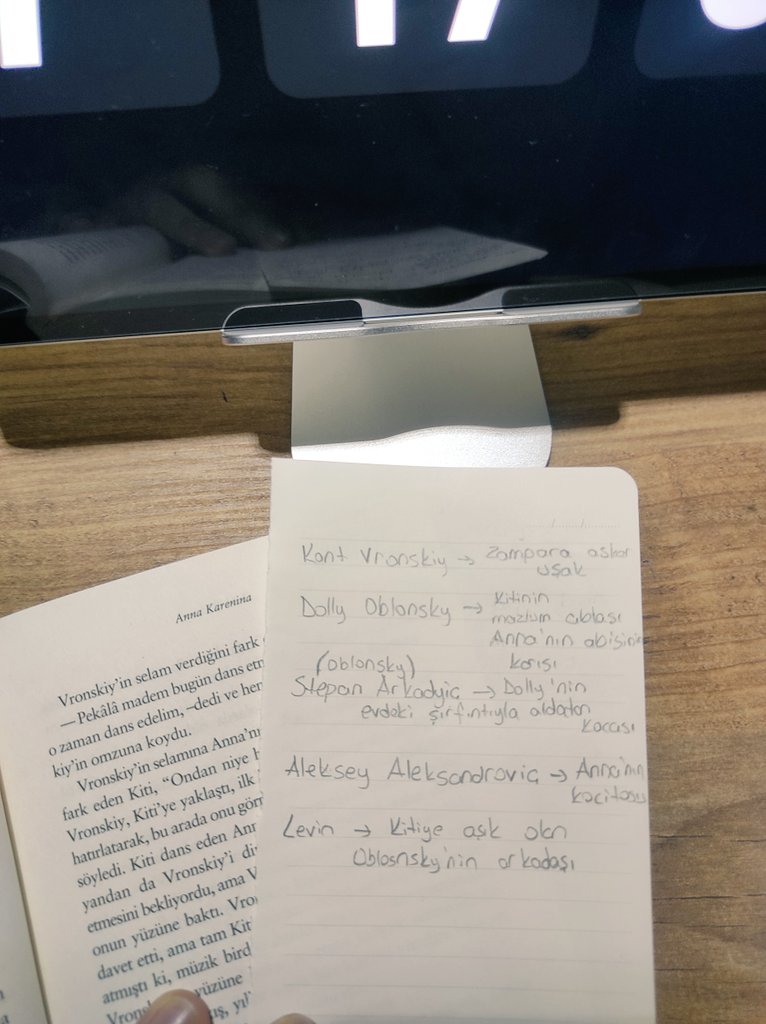 17
Anna Karenina
Vronskiy'in selam verdiğini fark
— Pekâlâ madem bugün dans etm
o zaman dans edelim, –dedi ve her
kiy'in omzuna koydu.
Vronskiy'in selamına Anna'nı
fark eden Kiti, “Ondan niye h
Vronskiy, Kiti'ye yaklaştı, ilk
hatırlatarak, bu arada onu görm
söyledi. Kiti dans eden Anr
yandan da Vronskiy'i di
etmesini bekliyordu, ama V
onun yüzüne baktı. Vro
davet etti, ama tam Kit
atmıştı ki, müzik bird
Vronsk yüzüne
uş, yıl
Kont Vronskiy → Zampara asker
uşak
Dolly Oblonsky → Kitinin
mazlum ablası
Anna'nın abisinin
karısı
(Oblonsky)
Stepan Arkadyiç → Dolly'nin
evdeki şırfıntıyla aldatan
kocası
Aleksey Aleksandroviç → Anna'nın
kocitosu
Levin → Kitiye aşık olan
Oblosnsky'nin arkadaşı